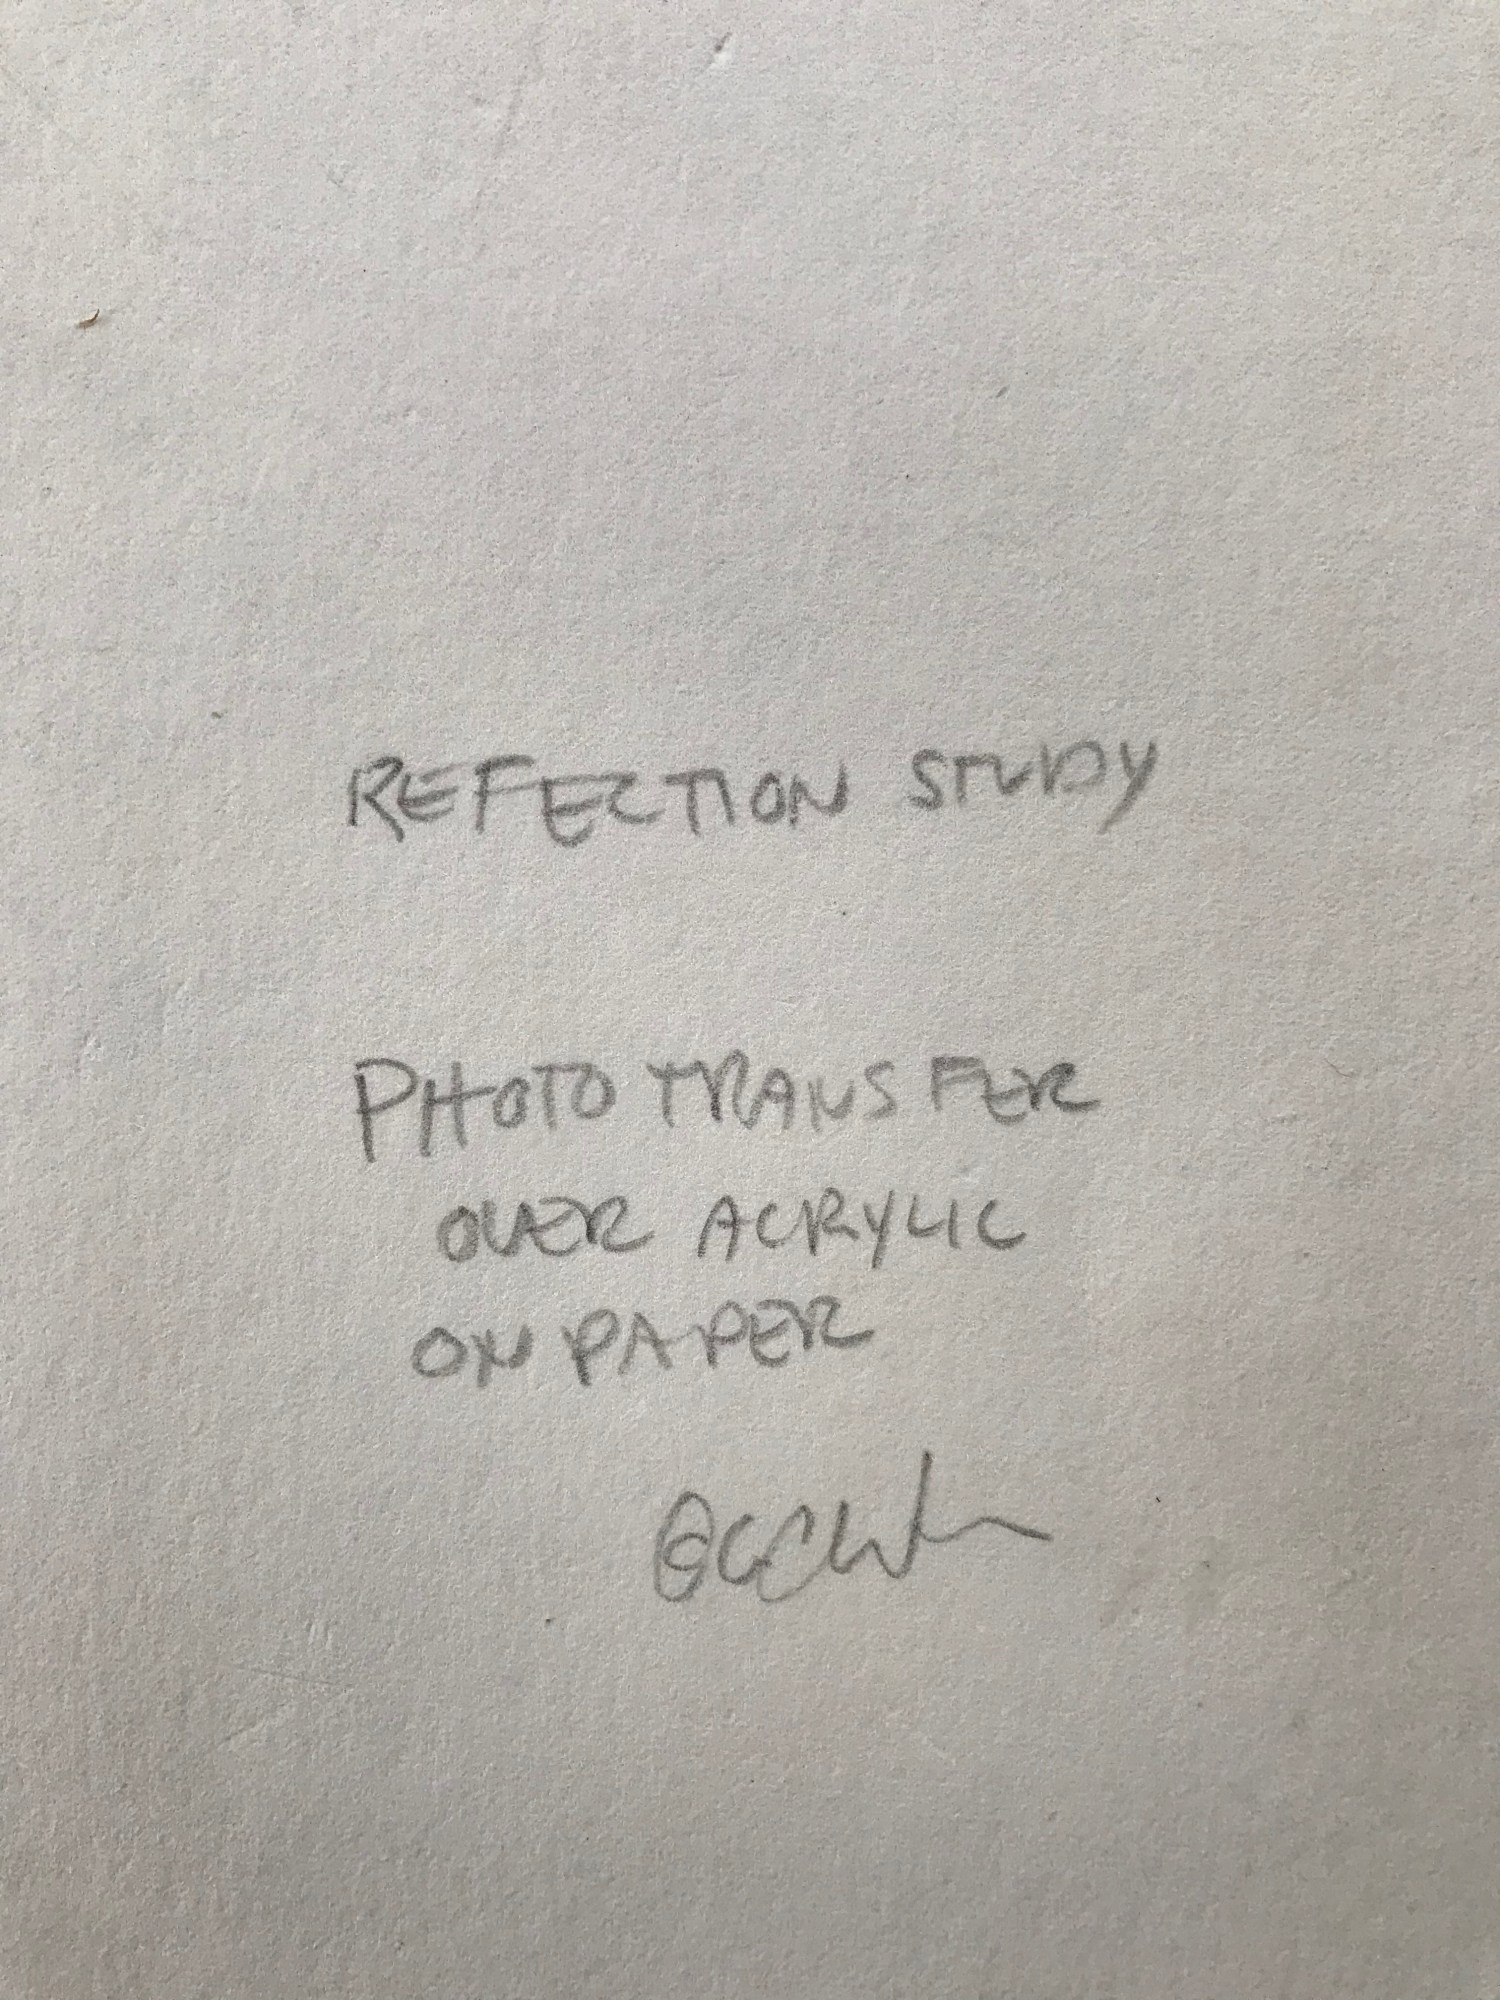 REFECTION STUDY
PHOTO TRANSFER
OVER ACRYLIC
ON PAPER